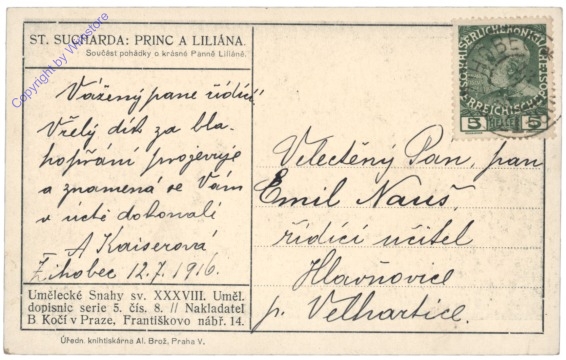 ST. SUCHARDA: PRINC A LILIÁNA.
Součást pohádky o krásné Panně Liliáně.
Copyright by Winstore
Vážený pane řídící
Vřelý dík za bla-
hopřání projevuje
a znamená se Vám
v úctě dokonalé
A Kaiserová
Žihobec 12.7.1916.
Umělecké Snahy sv. XXXVIII. Uměl.
dopisnic serie 5. čís. 8. // Nakladatel
B Kočí v Praze, Františkovo nábř. 14.
Úředn. knihtiskárna Al. Brož, Praha V.
5 5
Velectěný Pan, pan
Emil Nauš,
řídící učitel
Hlavňovice
p. Velhartice.